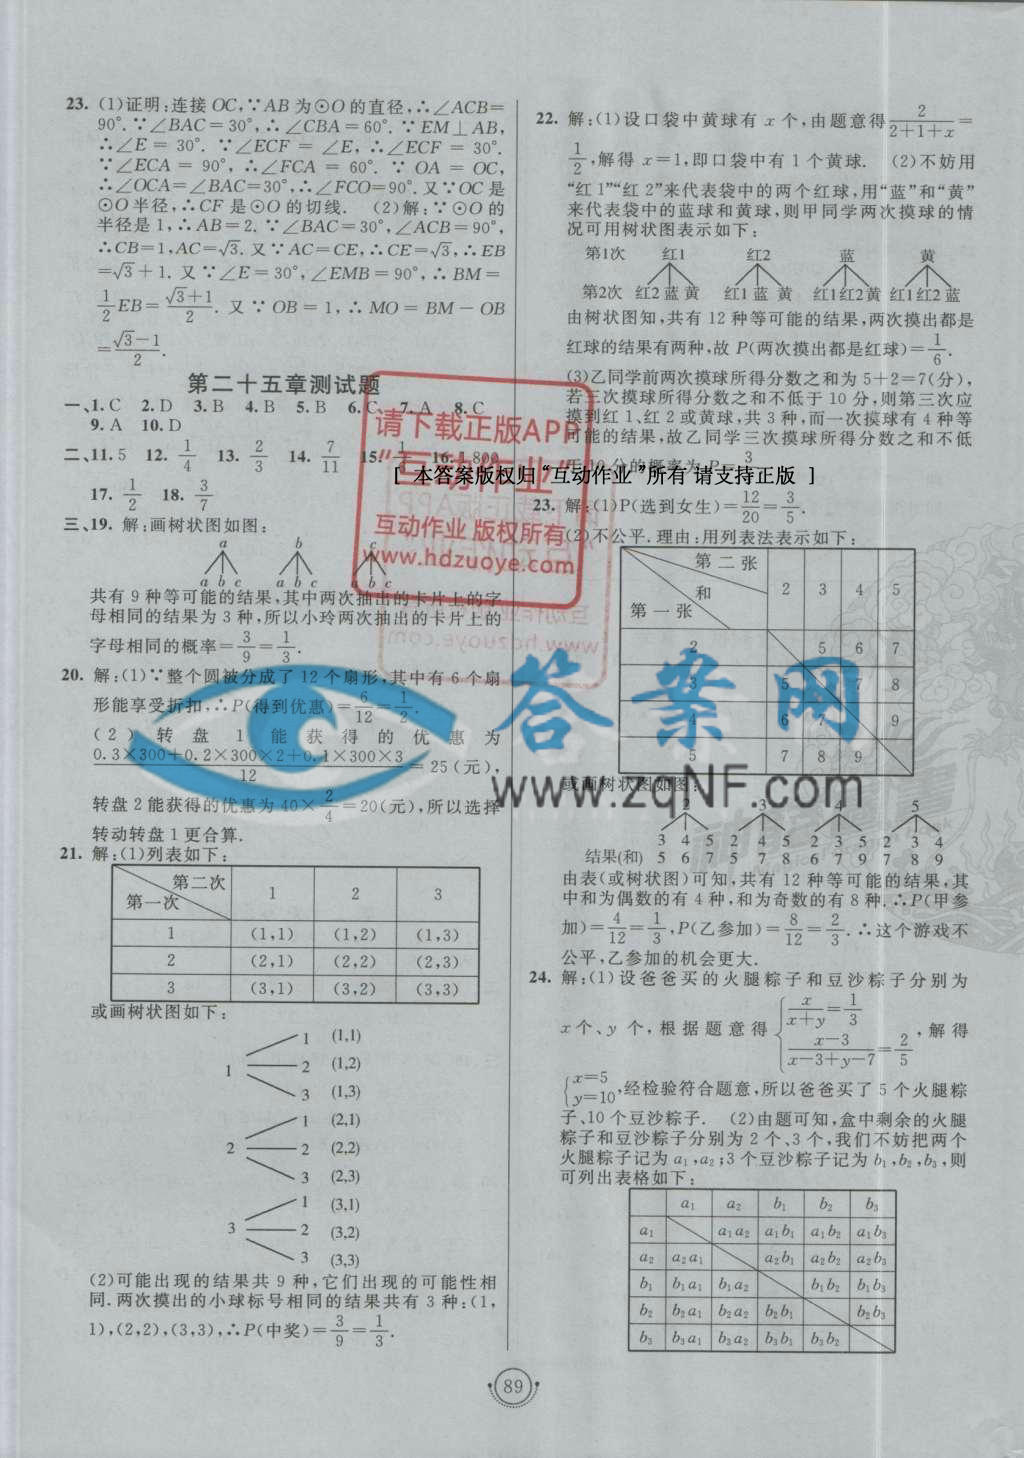 23. (1)证明:连接 OC,∵AB 为⊙O 的直径,∴∠ACB=
90°.∵∠BAC=30°,∴∠CBA=60°.∵EM⊥AB,
∴∠E=30°.∵∠ECF=∠E,∴∠ECF=30°.
∵∠ECA=90°,∴∠FCA=60°.∵OA=OC,
∴∠OCA=∠BAC=30°,∴∠FCO=90°.又∵OC 是
⊙O 半径,∴CF 是⊙O 的切线. (2)解:∵⊙O 的
半径是 1,∴AB=2.∵∠BAC=30°,∠ACB=90°,
∴CB=1,AC=√3.又∵AC=CE,∴CE=√3,∴EB
=√3+1.又∵∠E=30°,∠EMB=90°,∴BM=
1/2 EB=(√3+1)/2.又∵OB=1,∴MO=BM-OB
=(√3-1)/2.
第二十五章测试题
一、1.C 2.D 3.B 4.B 5.B 6.C 7.A 8.C
9.A 10.D
二、11.5 12. 1/4 13. 2/3 14. 7/11 15. 16.1 800
17. 1/2 18. 3/7
三、19. 解:画树状图如图:
a b c
a b c a b c a b c
共有 9 种等可能的结果,其中两次抽出的卡片上的字
母相同的结果为 3 种,所以小玲两次抽出的卡片上的
字母相同的概率=3/9=1/3.
20. 解:(1)∵整个圆被分成了 12 个扇形,其中有 6 个扇
形能享受折扣,∴P(得到优惠)=6/12=1/2.
(2)转盘 1 能获得的优惠为
(0.3×300+0.2×300×2+0.1×300×3)/12=25(元),
转盘 2 能获得的优惠为 40×2/4=20(元),所以选择
转动转盘 1 更合算.
21. 解:(1)列表如下:
第二次 第一次 1 2 3
1 (1,1) (1,2) (1,3)
2 (2,1) (2,2) (2,3)
3 (3,1) (3,2) (3,3)
或画树状图如下:
1 (1,1)
1 2 (1,2)
3 (1,3)
1 (2,1)
2 2 (2,2)
3 (2,3)
1 (3,1)
3 2 (3,2)
3 (3,3)
(2)可能出现的结果共 9 种,它们出现的可能性相
同.两次摸出的小球标号相同的结果共有 3 种:(1,
1),(2,2),(3,3),∴P(中奖)=3/9=1/3.
22. 解:(1)设口袋中黄球有 x 个,由题意得 2/(2+1+x)=
1/2,解得 x=1,即口袋中有 1 个黄球. (2)不妨用
“红 1”“红 2”来代表袋中的两个红球,用“蓝”和“黄”
来代表袋中的蓝球和黄球,则甲同学两次摸球的情
况可用树状图表示如下:
第1次 红1 红2 蓝 黄
第2次 红2 蓝 黄 红1 蓝 黄 红1红2黄 红1红2蓝
由树状图知,共有 12 种等可能的结果,两次摸出都是
红球的结果有两种,故 P(两次摸出都是红球)=1/6.
(3)乙同学前两次摸球所得分数之和为 5+2=7(分),
若三次摸球所得分数之和不低于 10 分,则第三次应
摸到红 1、红 2 或黄球,共 3 种,而一次摸球有 4 种等
可能的结果,故乙同学三次摸球所得分数之和不低
于 10 分的概率 P=3
23. 解:(1)P(选到女生)=12/20=3/5.
(2)不公平.理由:用列表法表示如下:
第二张 和 第一张 2 3 4 5
2 5 6 7
3 5 7 8
4 6 7 9
5 7 8 9
或画树状图如图:
2 3 4 5
3 4 5 2 4 5 2 3 5 2 3 4
结果(和) 5 6 7 5 7 8 6 7 9 7 8 9
由表(或树状图)可知,共有 12 种等可能的结果,其
中和为偶数的有 4 种,和为奇数的有 8 种.∴P(甲参
加)=4/12=1/3,P(乙参加)=8/12=2/3.∴这个游戏不
公平,乙参加的机会更大.
24. 解:(1)设爸爸买的火腿粽子和豆沙粽子分别为
x 个、y 个,根据题意得 {x/(x+y)=1/3, (x-3)/(x-3+y-7)=2/5, 解得
{x=5 y=10,经检验符合题意,所以爸爸买了 5 个火腿粽
子、10 个豆沙粽子. (2)由题可知,盒中剩余的火腿
粽子和豆沙粽子分别为 2 个、3 个,我们不妨把两个
火腿粽子记为 a₁,a₂;3 个豆沙粽子记为 b₁,b₂,b₃,则
可列出表格如下:
a₁ a₂ b₁ b₂ b₃
a₁ a₁a₂ a₁b₁ a₁b₂ a₁b₃
a₂ a₂a₁ a₂b₁ a₂b₂ a₂b₃
b₁ b₁a₁ b₁a₂ b₁b₂ b₁b₃
b₂ b₂a₁ b₂a₂ b₂b₁ b₂b₃
b₃ b₃a₁ b₃a₂ b₃b₁ b₃b₂
89
请下载正版APP
“互动作业”
互动作业 版权所有
www.hdzuoye.com
[ 本答案版权归“互动作业”所有 请支持正版 ]
答案网
www.zqNF.com